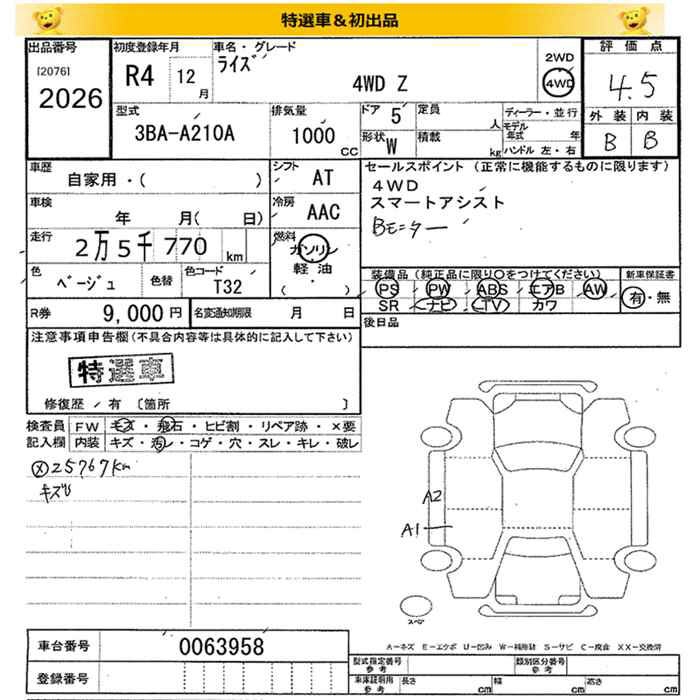 特選車&初出品
出品番号
[2076]
2026
初度登録年月
R4 12月
車名・グレード
ライズ
4WD Z
2WD
4WD
評価点
4.5
外装 内装
B B
型式
3BA-A210A
排気量
1000 CC
ドア 5
形状 W
定員 人
積載 kg
ディーラー・並行
モデル年式 年
ハンドル 左・右
車歴
自家用・( )
シフト
AT
車検
年 月( 日)
冷房
AAC
走行
2万5千770 km
燃料
ガソリン
軽油
( ・ )
色
ベージュ
色替
色コード
T32
R券 9,000円
名変通知期限 月 日
セールスポイント(正常に機能するものに限ります)
4WD
スマートアシスト
BEニター
装備品(純正品に限り○をつけてください)
PS PW ABS エアB AW
SR ナビ TV カワ
新車保証書
有・無
後日品
注意事項申告欄(不具合内容等は具体的に記入して下さい)
特選車
修復歴/有 〔箇所 〕
検査員記入欄
FW キズ・飛石・ヒビ割・リペア跡・×要
内装 キズ・汚レ・コゲ・穴・スレ・キレ・破レ
ⓧ25767km
キズ
A2
A1
スペア
A-キズ E-エクボ U-凹み W-補修跡 S-サビ C-腐食 XX-交換済
車台番号 0063958
登録番号
型式指定番号 参考
類別区分番号 参考
車庫証明用 参考
長さ cm 幅 cm 高さ cm